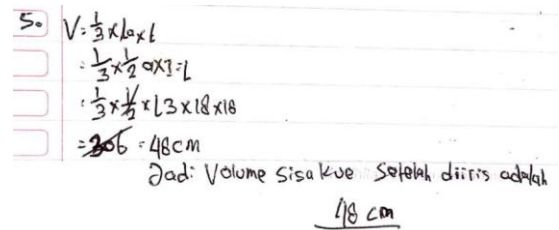 5. V = 1/3 x La x t
= 1/3 x 1/2 a x t = L
= 1/3 x 1/2 x 13 x 18 x 18
= 306 = 48 cm
Jadi: Volume sisa kue setelah diiris adalah
48 cm